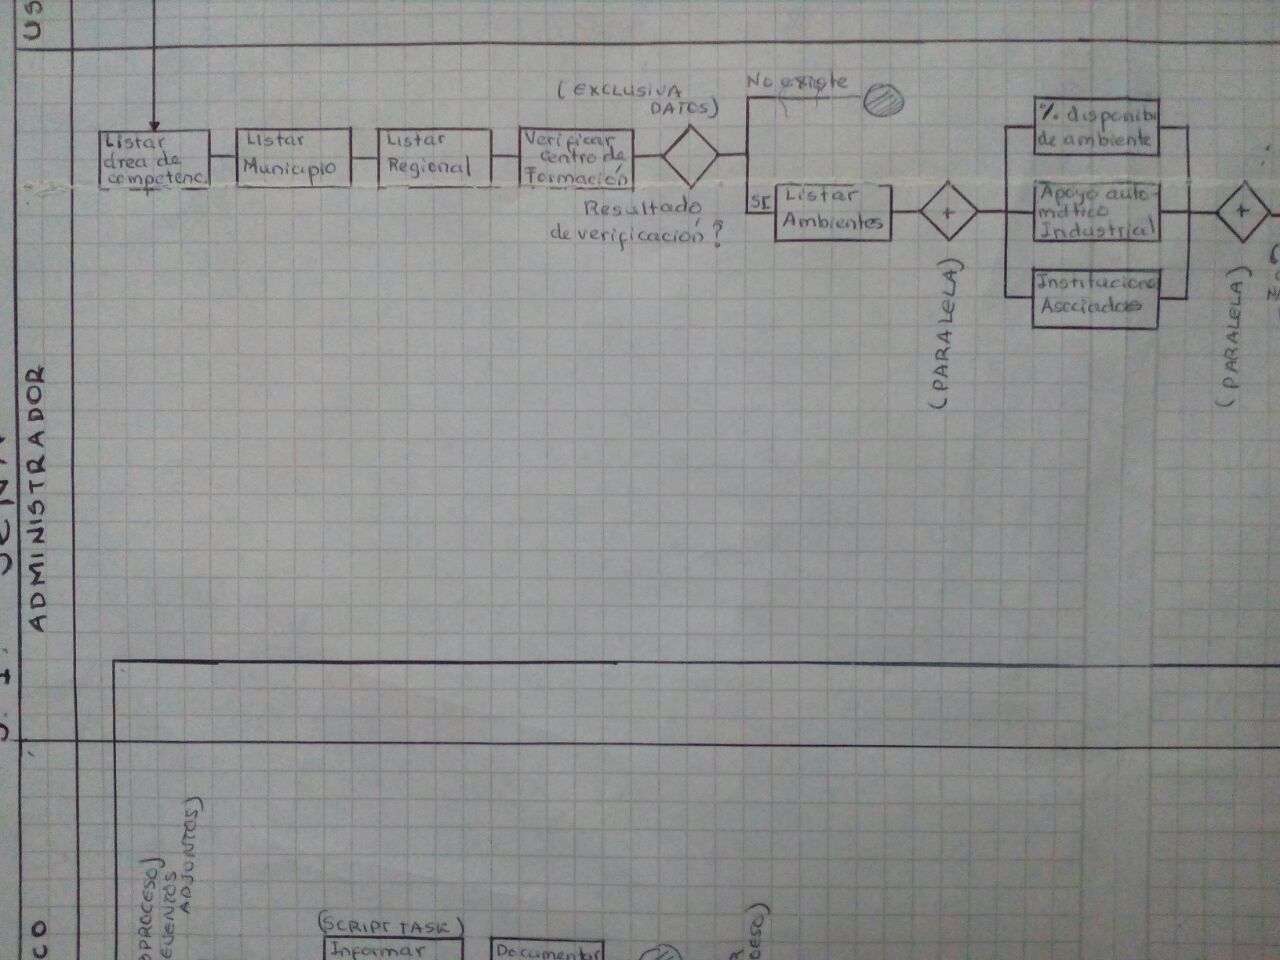 US
Listar
área de
competenc.
Listar
Municipio
Listar
Regional
Verificar
centro de
Formación
(EXCLUSIVA
DATOS)
Resultado
de verificación?
No existe
SI
Listar
Ambientes
+
(PARALELA)
% disponibi
de ambiente
Apoyo auto-
mático
Industrial
Institucione
Asociadas
+
(PARALELA)
ADMINISTRADOR
SENA
J. I.
CO
OPROCESO)
EVENTOS
ADJUNTOS)
(SCRIPT TASK)
Informar
Documentar
R
OESO)